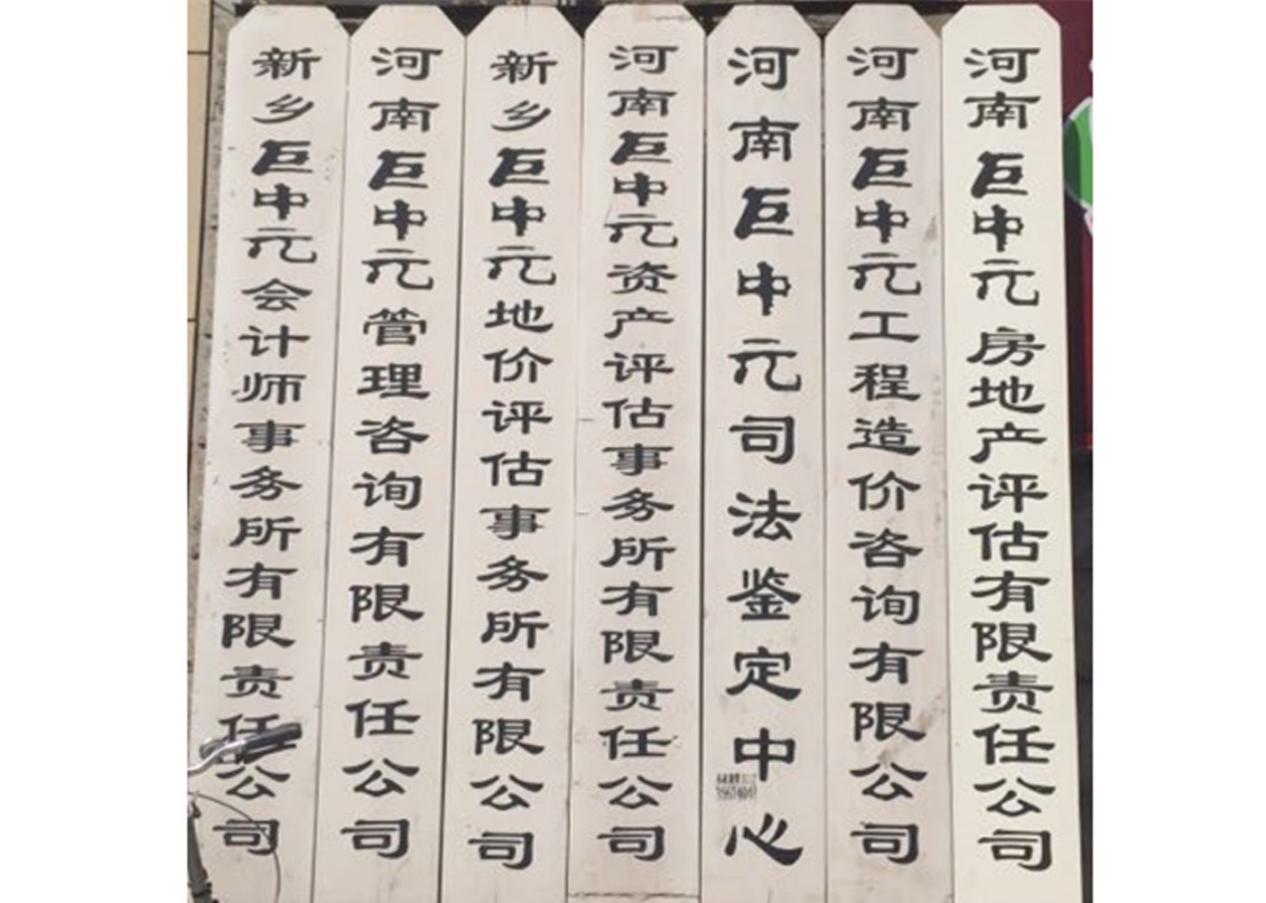 新乡巨中元会计师事务所有限责任公司
河南巨中元管理咨询有限责任公司
新乡巨中元地价评估事务所有限公司
河南巨中元资产评估事务所有限责任公司
河南巨中元司法鉴定中心
河南巨中元工程造价咨询有限公司
河南巨中元房地产评估有限责任公司